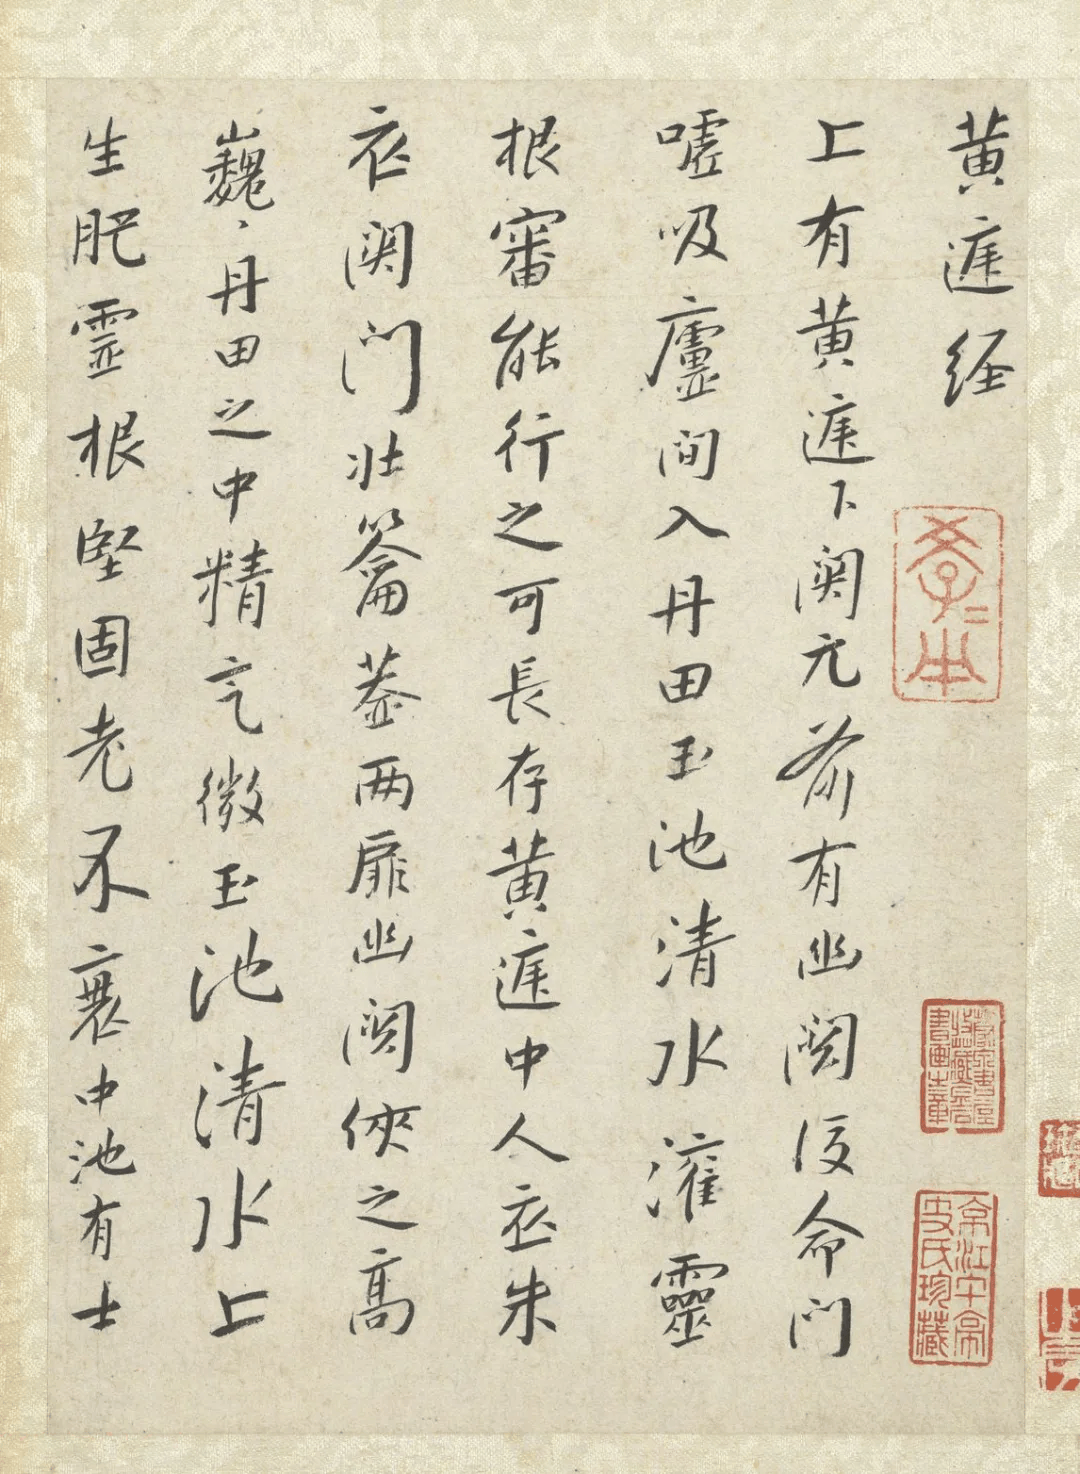 黄庭经
上有黄庭下関元前有幽関后命门
嘘吸廬间入丹田玉池清水灌靈
根審能行之可長存黄庭中人衣朱
衣関门壮籥葢两扉幽関侠之高
巍巍丹田之中精气微玉池清水上
生肥霊根堅固老不衰中池有士
京江牛弟皮氏珍藏